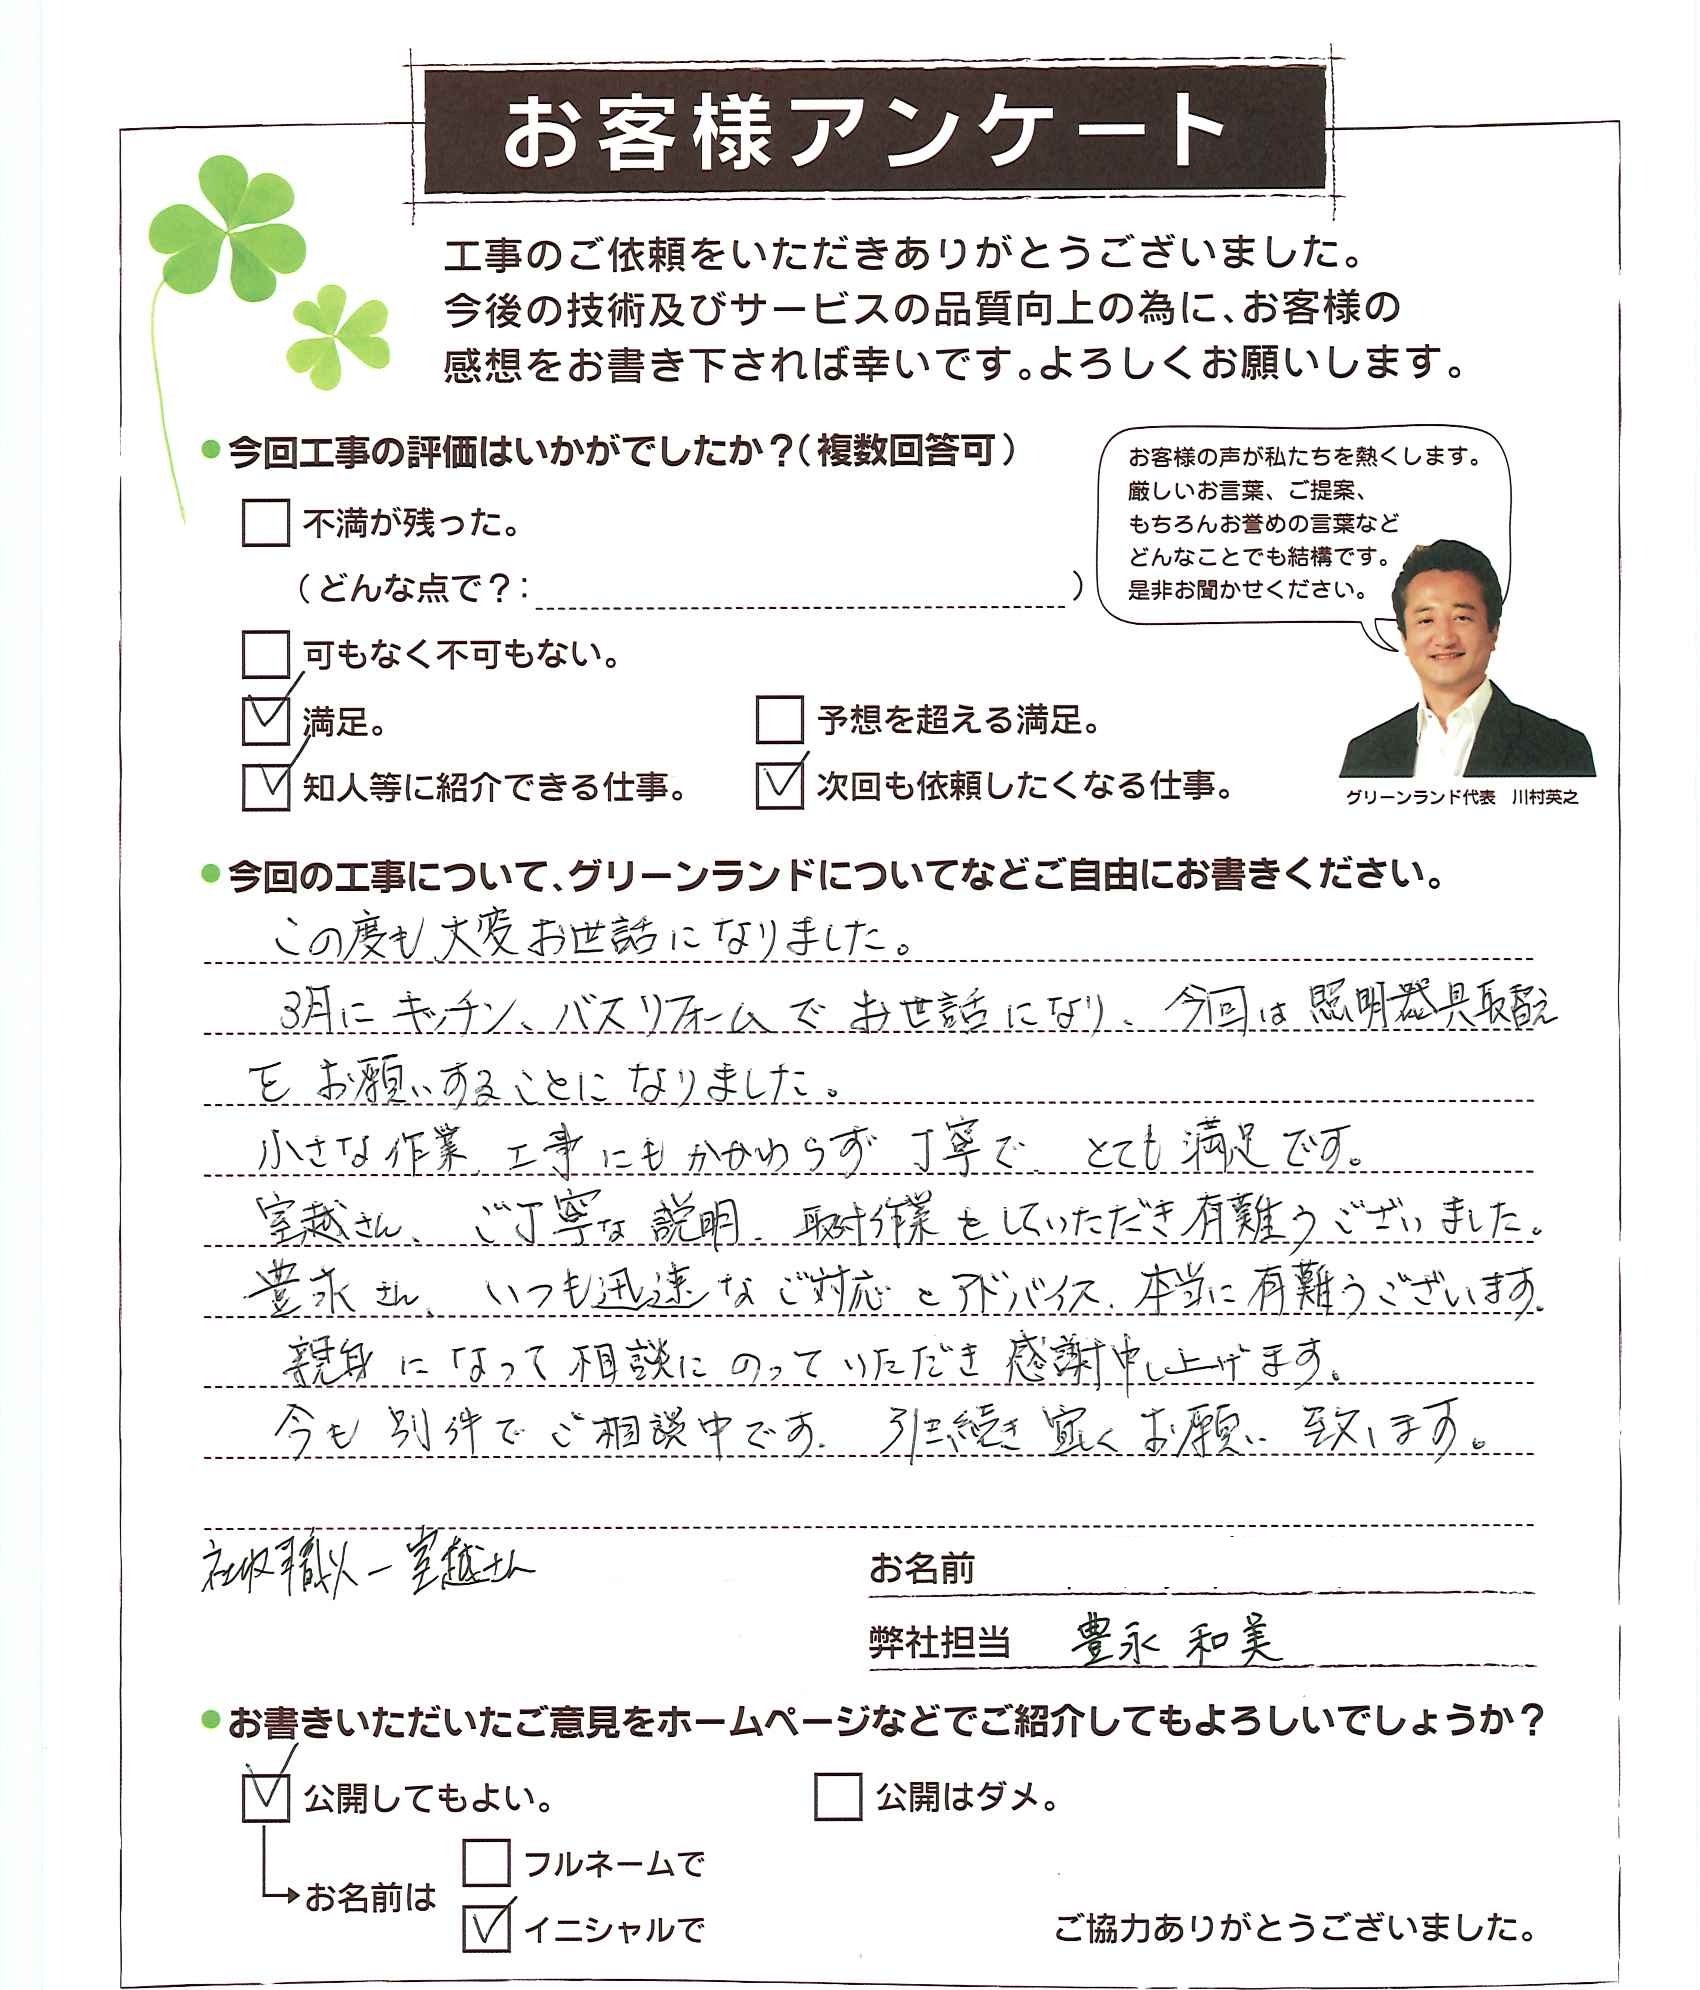 お客様アンケート
工事のご依頼をいただきありがとうございました。
今後の技術及びサービスの品質向上の為に、お客様の
感想をお書き下されば幸いです。よろしくお願いします。
●今回工事の評価はいかがでしたか?(複数回答可)
不満が残った。
(どんな点で?: )
可もなく不可もない。
満足。
予想を超える満足。
知人等に紹介できる仕事。
次回も依頼したくなる仕事。
お客様の声が私たちを熱くします。
厳しいお言葉、ご提案、
もちろんお誉めの言葉など
どんなことでも結構です。
是非お聞かせください。
グリーンランド代表 川村英之
●今回の工事について、グリーンランドについてなどご自由にお書きください。
この度も大変お世話になりました。
3月にキッチン、バスリフォームでお世話になり、今回は照明器具取替え
をお願いすることになりました。
小さな作業、工事にもかかわらず丁寧で、とても満足です。
室越さん、ご丁寧な説明、取付作業をしていただき有難うございました。
豊永さん、いつも迅速なご対応とアドバイス、本当に有難うございます。
親身になって相談にのっていただき感謝申し上げます。
今も別件でご相談中です。引き続き宜しくお願い致します。
職人ー室越さん
お名前
弊社担当 豊永 和美
●お書きいただいたご意見をホームページなどでご紹介してもよろしいでしょうか?
公開してもよい。
公開はダメ。
お名前は
フルネームで
イニシャルで
ご協力ありがとうございました。